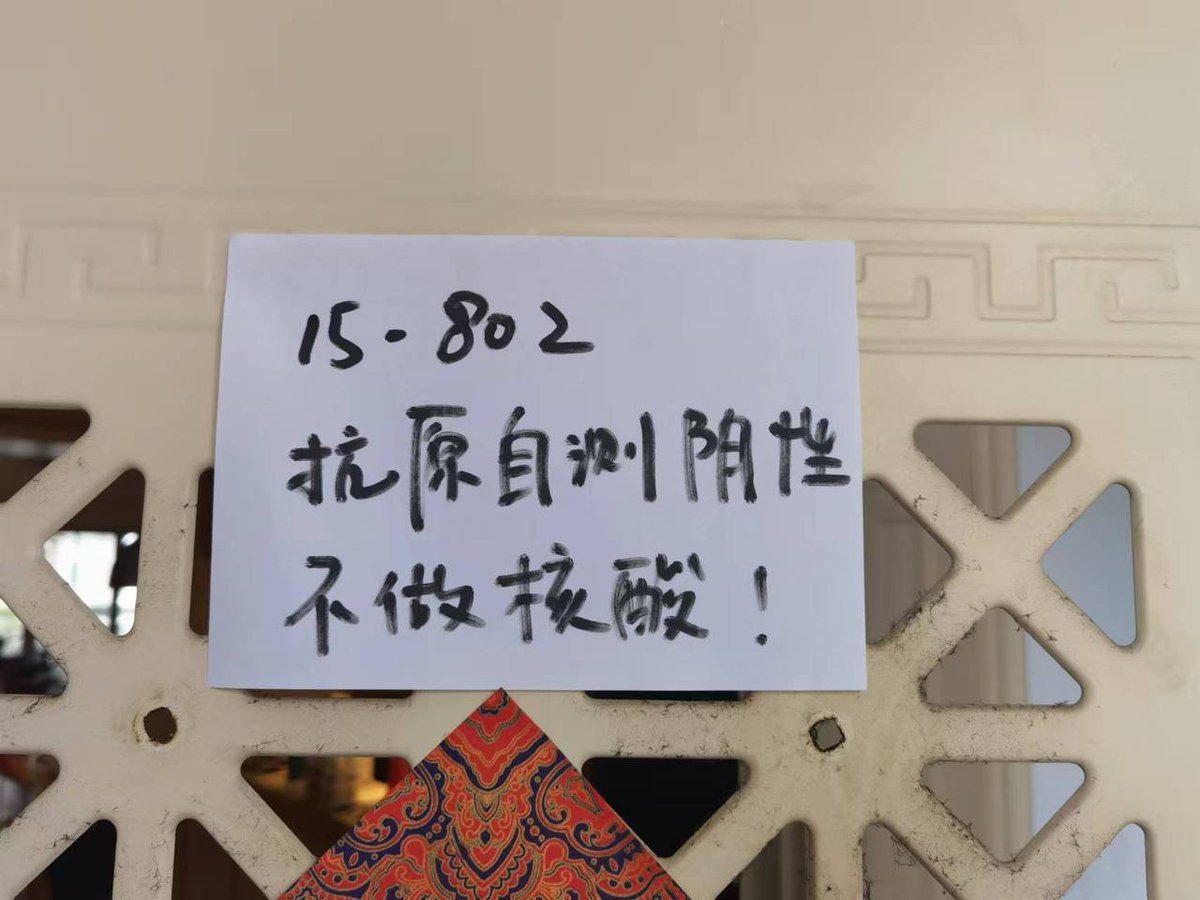 15-802
抗原自测阴性
不做核酸！